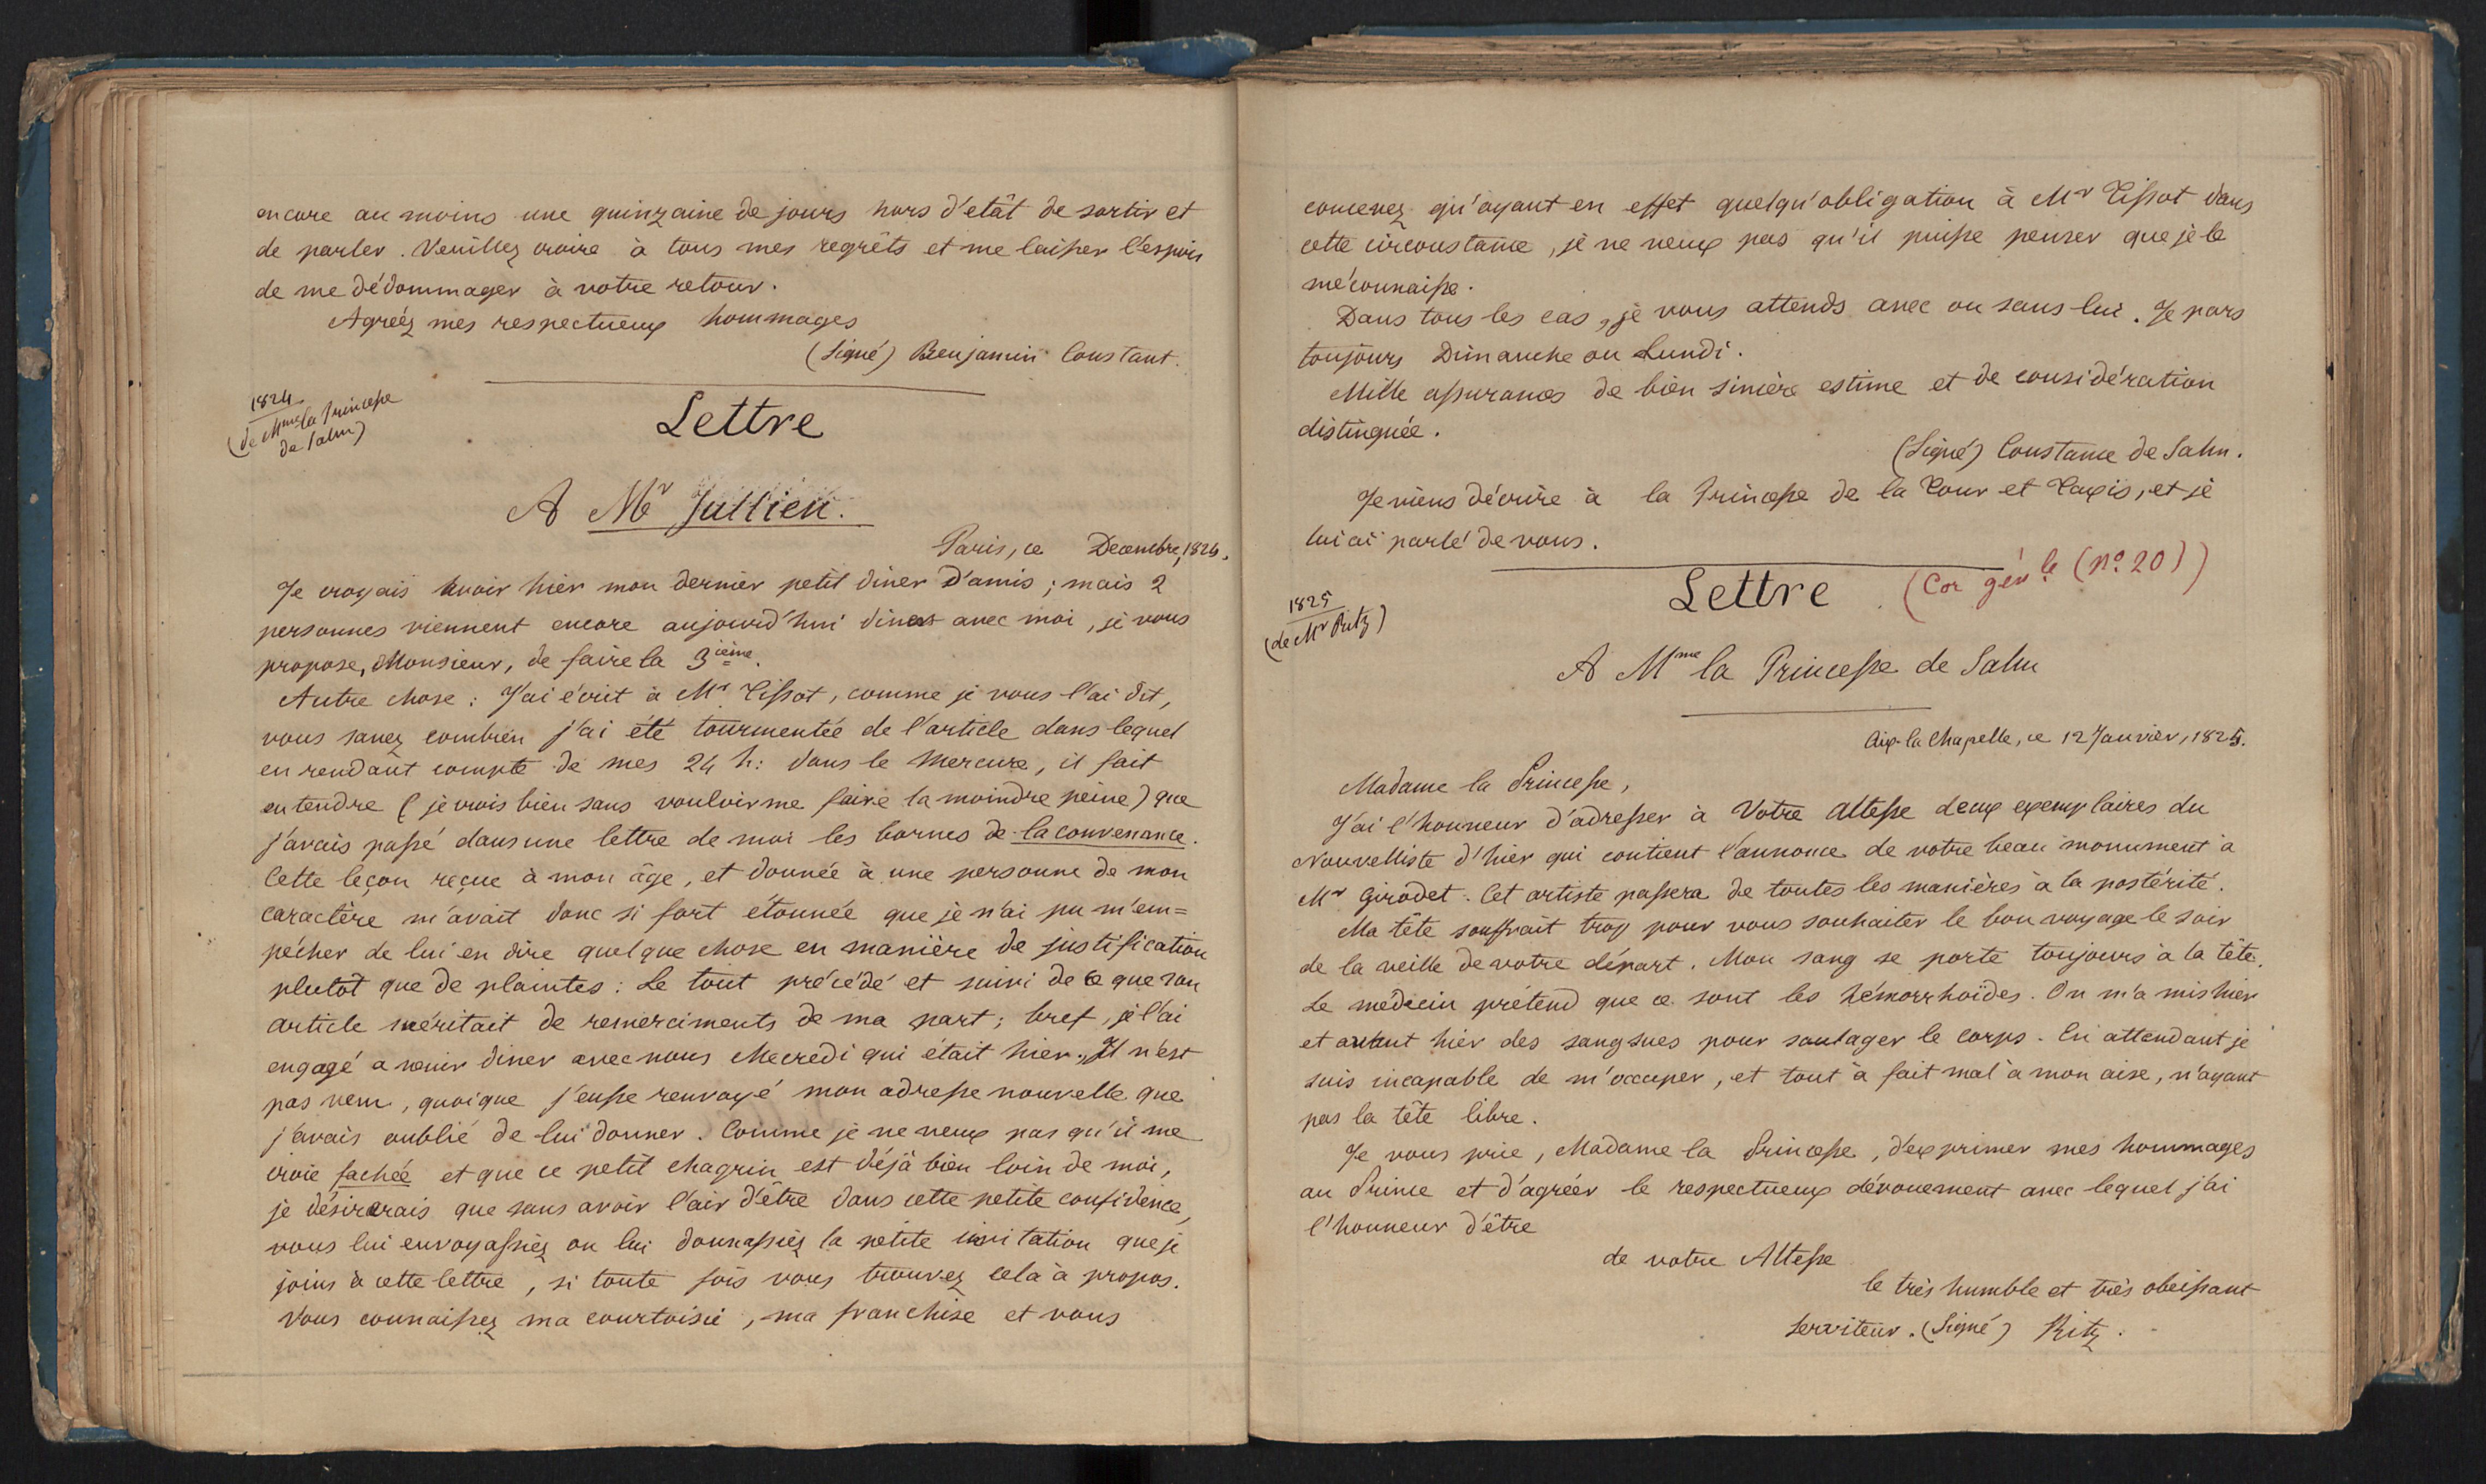 encore au moins une quinzaine de jours hors d'etât de sortir et
de parler. Veuillez croire à tous mes regrêts et me laisser l'espoir
de me dédommager à votre retour.
Agréez mes respectueux hommages
(Signé) Benjamin Constant.
1824
(de Mme la Princesse
de Salm)
Lettre
A Mr Jullien.
Paris, ce Decembre, 1824.
Je croyais avoir hier mon dernier petit diner d'amis; mais 2
personnes viennent encore aujourd'hui diner avec moi, je vous
propose, Monsieur, de faire la 3ième.
Autre chose: J'ai écrit à Mr Tissot, comme je vous l'ai dit,
vous savez combien j'ai été tourmentée de l'article dans lequel
en rendant compte de mes 24 h: dans le Mercure, il fait
entendre (je crois bien sans vouloir me faire la moindre peine) que
j'avais passé dans une lettre de moi les bornes de la convenance.
Cette leçon reçue à mon âge, et donnée à une personne de mon
caractère m'avait donc si fort étonnée que je n'ai pu m'em=
pécher de lui en dire quelque chose en manière de justification
plutôt que de plaintes: Le tout précédé et suivi de ce que son
article méritait de remerciments de ma part; bref, je l'ai
engagé a venir diner avec nous Mecredi qui était hier. Il n'est
pas venu, quoique j'eusse renvoyé mon adresse nouvelle que
j'avais oublié de lui donner. Comme je ne veux pas qu'il me
croie fachée et que ce petit chagrin est déjà bien loin de moi,
je désirerais que sans avoir l'air d'être dans cette petite confidence,
vous lui envoyassiez ou lui donnassiez la petite invitation que je
joins à cette lettre, si toute fois vous trouvez cela à propos.
Vous connaissez ma courtoisie, ma franchise et vous
concevez qu'ayant en effet quelqu'obligation à Mr Tissot dans
cette circonstance, je ne veux pas qu'il puisse penser que je le
méconnaisse.
Dans tous les cas, je vous attends avec ou sans lui. Je pars
toujours Dimanche ou Lundi.
Mille assurances de bien sincère estime et de considération
distinguée.
(Signé) Constance de Salm.
Je viens d'écrire à la Princesse de la Tour et Taxis, et je
lui ai parlé de vous.
1825
(de Mr Ritz)
Lettre . (Cor génle (No 20))
A Mme la Princesse de Salm
Aix-la Chapelle, ce 12 Janvier, 1825.
Madame la Princesse,
J'ai l'honneur d'adresser à Votre Altesse deux exemplaires du
Nouvelliste d'hier qui contient l'annonce de votre beau monument à
Mr Girodet. Cet artiste passera de toutes les manières à la postérité.
Ma tête souffrait trop pour vous souhaiter le bon voyage le soir
de la veille de votre départ. Mon sang se porte toujours à la tête.
Le medecin prétend que ce sont les hémorrhoïdes. On m'a mis hier
et avant hier des sangsues pour soulager le corps. En attendant je
suis incapable de m'occuper, et tout à fait mal à mon aise, n'ayant
pas la tête libre.
Je vous prie, Madame la Princesse, d'exprimer mes hommages
au Prince et d'agréer le respectueux dévouement avec lequel j'ai
l'honneur d'être
de votre Altesse
le très humble et très obeissant
serviteur. (Signé) Ritz.